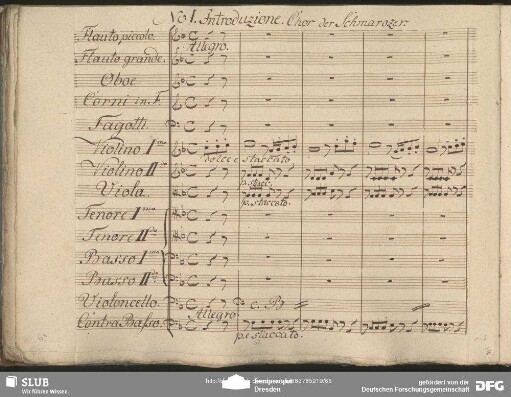 No 1. Introduzione. Chor der Schmarozer.
Flauto piccolo.
Allegro.
Flauto grande.
Oboe
Corni in F.
Fagotti
Violino Imo
dolce e staccato
Violino IIdo
p. stacc.
Viola
p. staccato.
Tenore Imo
Tenore IIdo
Basso Imo
Basso IIdo
Violoncello
c. B
Allegro
Contra Basso.
p. e staccato.
SLUB
Wir führen Wissen.
Dresden
gefördert von der
Deutschen Forschungsgemeinschaft
DFG